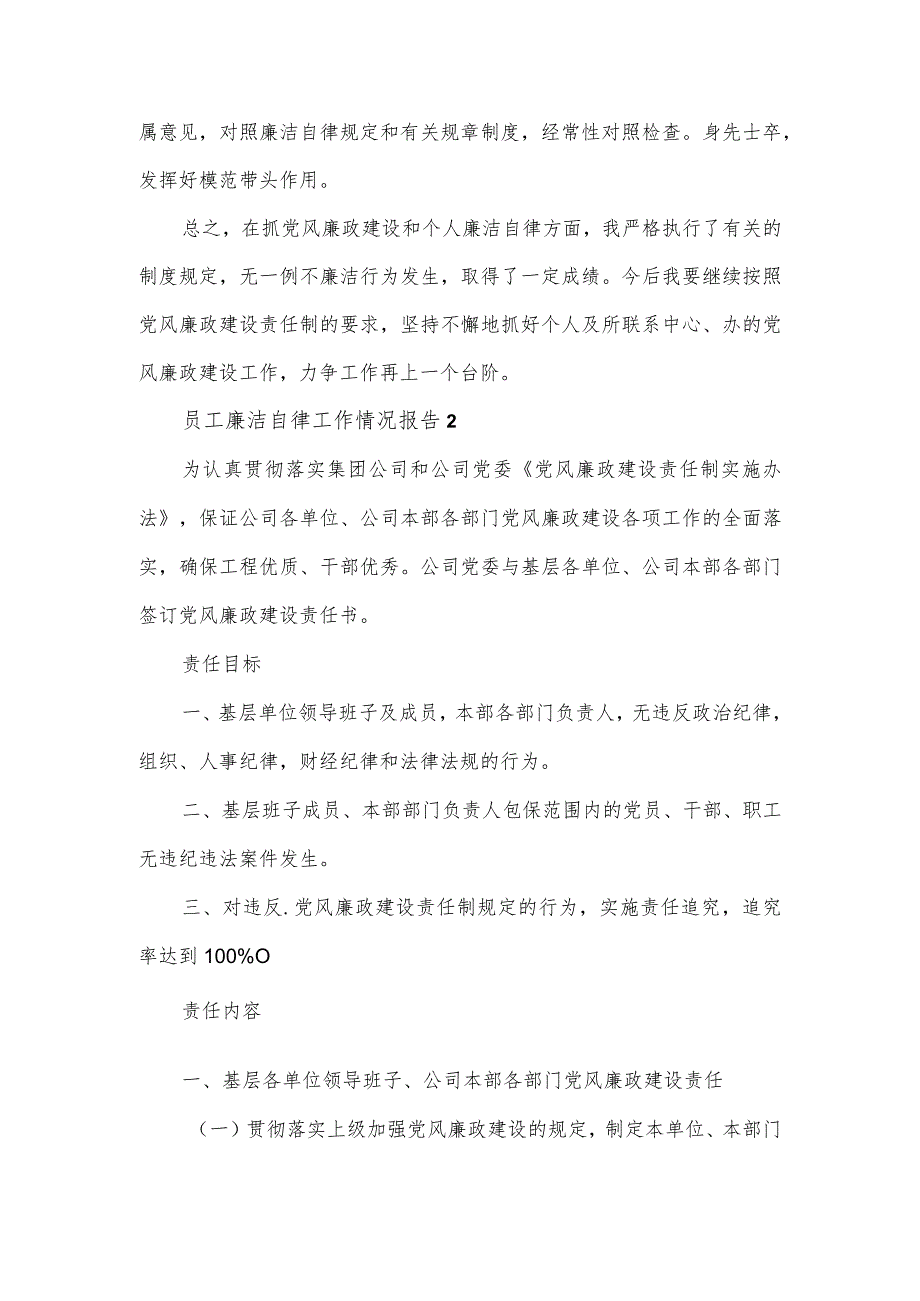 属意见，对照廉洁自律规定和有关规章制度，经常性对照检查。身先士卒，
发挥好模范带头作用。
总之，在抓党风廉政建设和个人廉洁自律方面，我严格执行了有关的
制度规定，无一例不廉洁行为发生，取得了一定成绩。今后我要继续按照
党风廉政建设责任制的要求，坚持不懈地抓好个人及所联系中心、办的党
风廉政建设工作，力争工作再上一个台阶。
员工廉洁自律工作情况报告2
为认真贯彻落实集团公司和公司党委《党风廉政建设责任制实施办
法》，保证公司各单位、公司本部各部门党风廉政建设各项工作的全面落
实，确保工程优质、干部优秀。公司党委与基层各单位、公司本部各部门
签订党风廉政建设责任书。
责任目标
一、基层单位领导班子及成员，本部各部门负责人，无违反政治纪律，
组织、人事纪律，财经纪律和法律法规的行为。
二、基层班子成员、本部部门负责人包保范围内的党员、干部、职工
无违纪违法案件发生。
三、对违反.党风廉政建设责任制规定的行为，实施责任追究，追究
率达到100%O
责任内容
一、基层各单位领导班子、公司本部各部门党风廉政建设责任
（一）贯彻落实上级加强党风廉政建设的规定，制定本单位、本部门